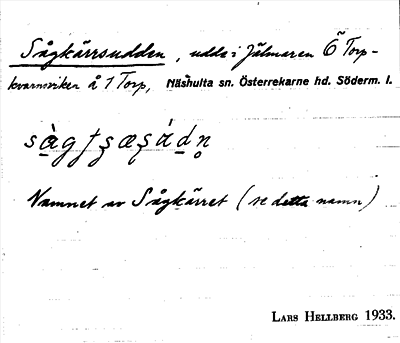 Sågkärrsudden, udde i Hjälmaren Ö Torp-
kvarnsviken å 1 Torp, Näshulta sn. Österrekarne hd. Söderm. l.
Namnet av Sågkärret (se detta namn)
LARS HELLBERG 1933.